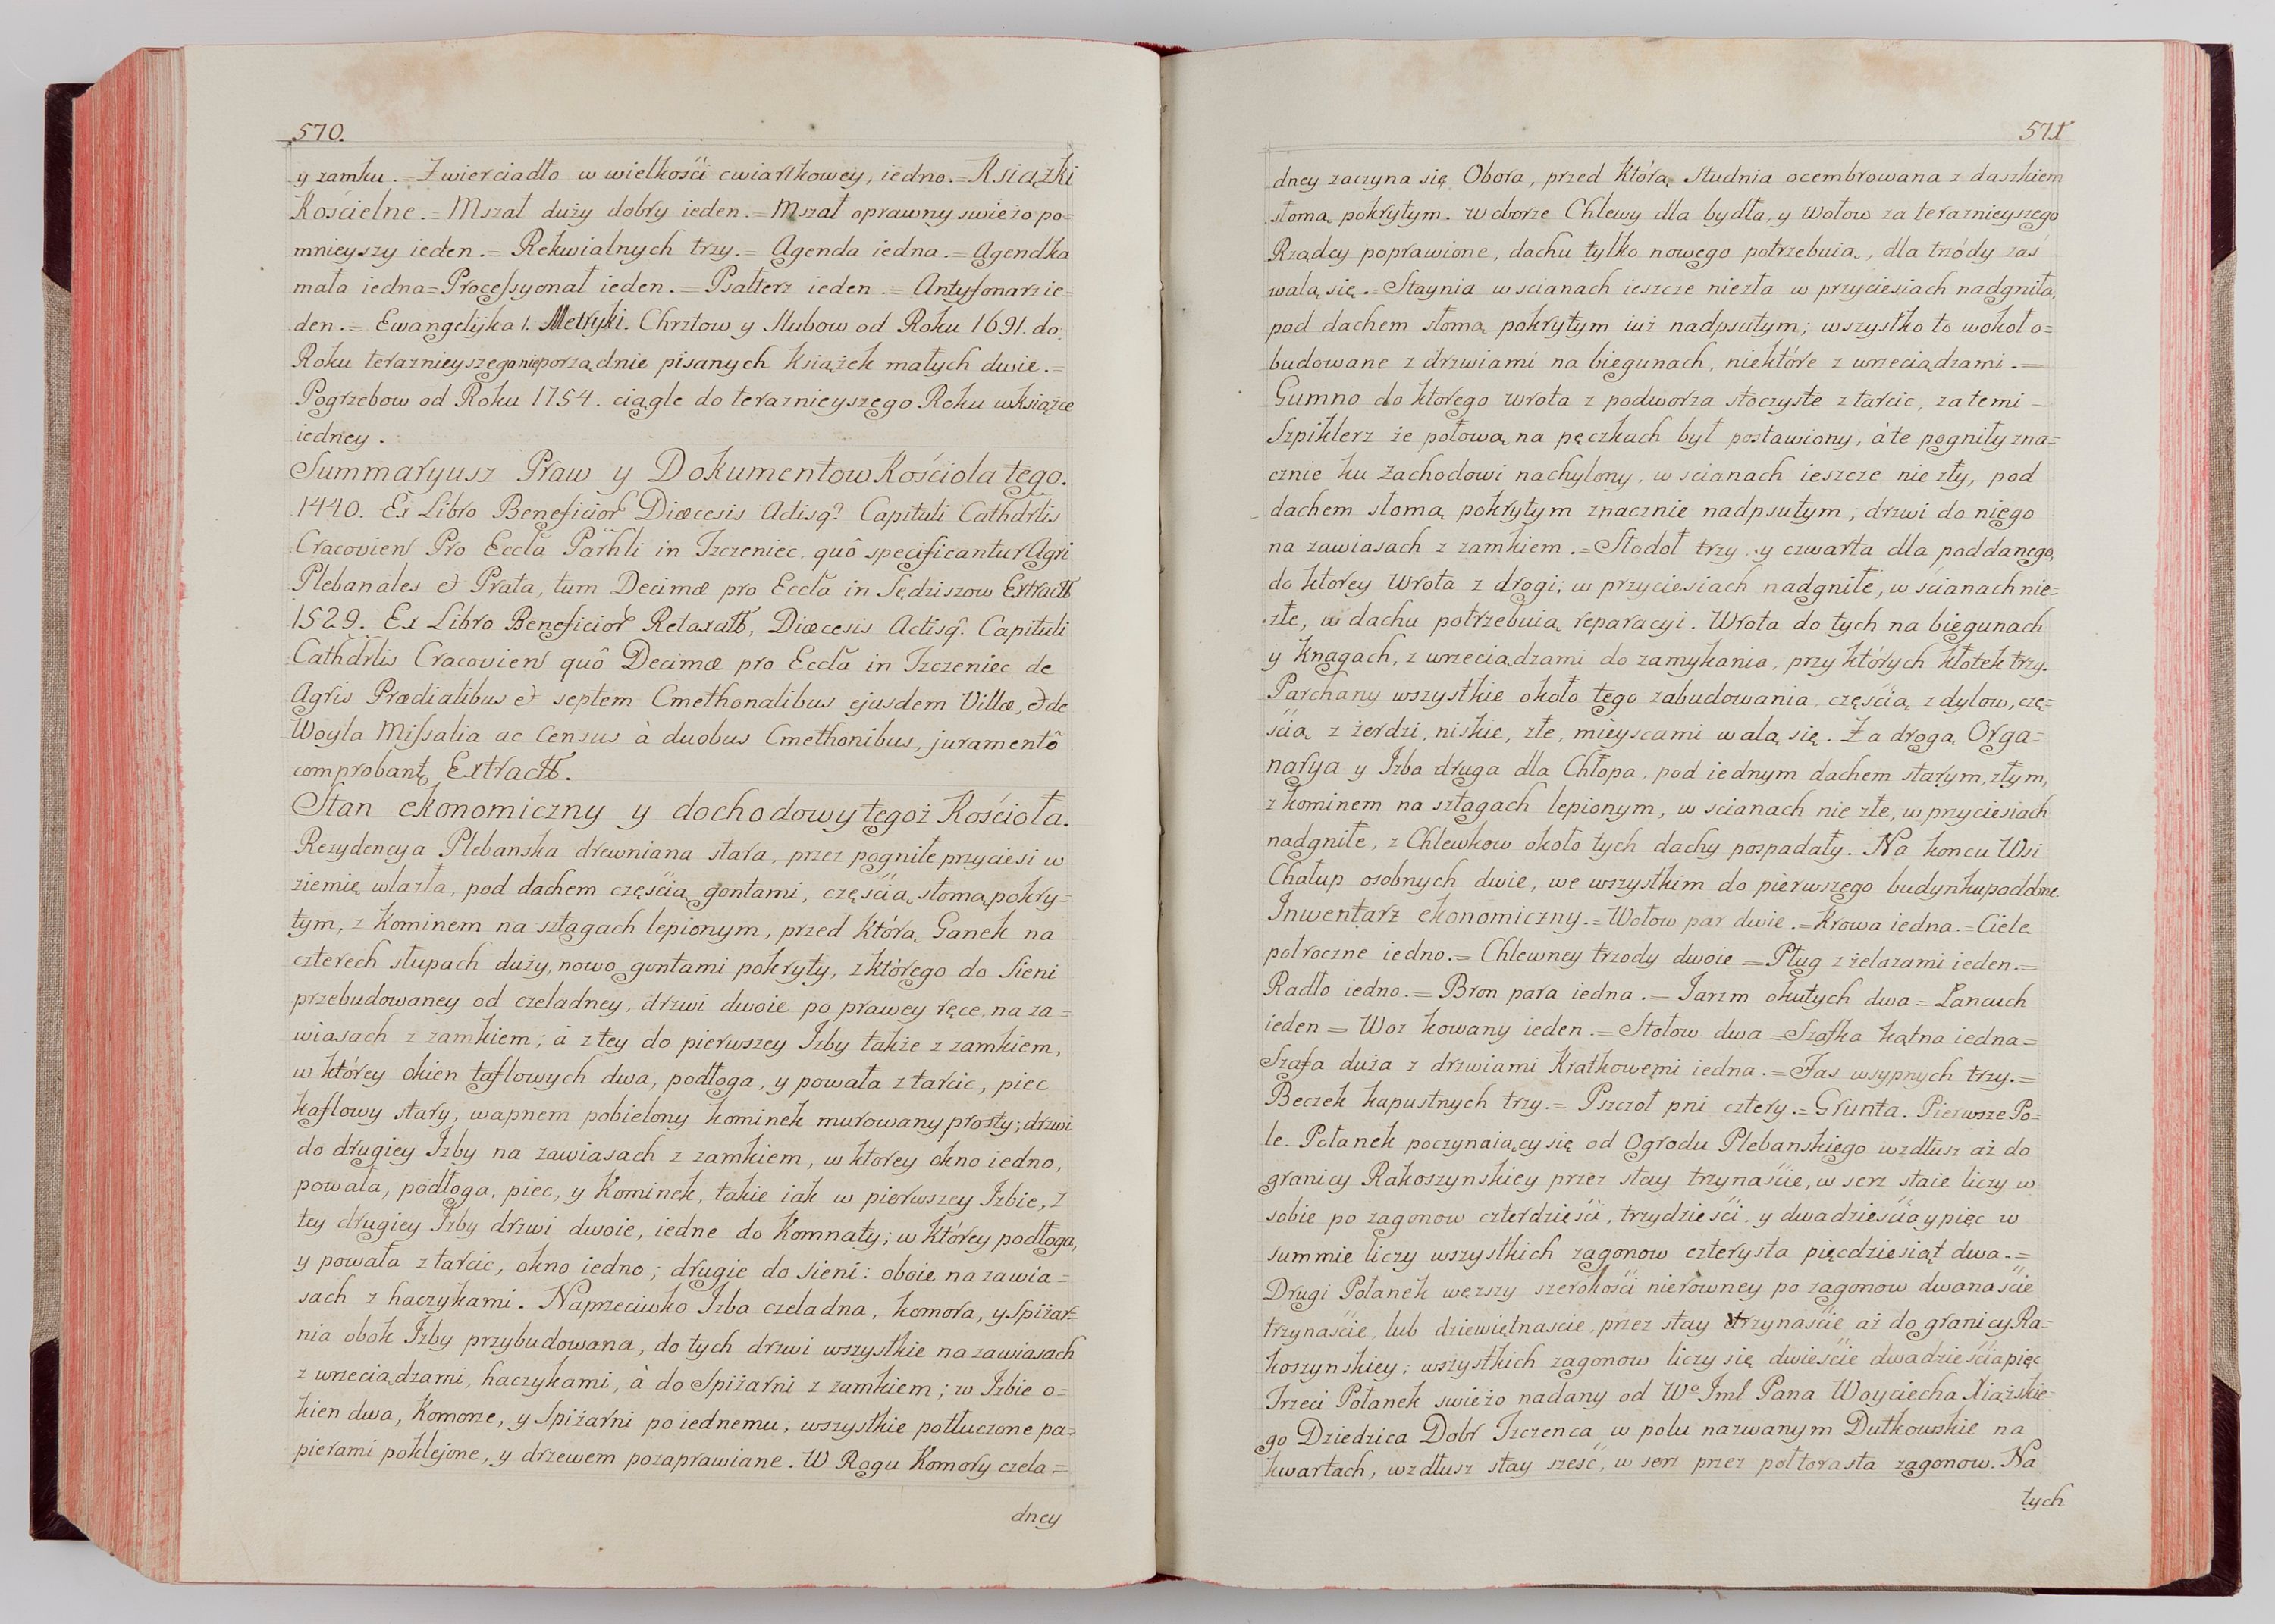 570.
y zamku. = Zwierciadło w wielkości cwiartkowey, iedno. = Ksiązki
Kościelne. = Mszał duży dobry ieden. = Mszał oprawny swieżo po=
mnieyszy ieden. = Rekwialnych trzy. = Agenda iedna. = Agendka
mała iedna = Processyonał ieden. = Psałterz ieden. = Antyfonarz ie=
den. = Ewangelijka 1. Metryki. Chrztow y Slubow od Roku 1691. do
Roku teraznieyszego nieporządnie pisanych książek małych dwie. =
Pogrzebow od Roku 1754. ciągle do teraznieyszego Roku w książce
iedney.
Summaryusz Praw y Dokumentow Kościola tego.
1440. Ex Libro Beneficior Diœcesis Actisq? Capituli Cathdrlis
Cracovien Pro Eccla Parhli in Tzczeniec. quô specificantur Agri
Plebanales et Prata, tum Decimæ pro Eccla in Sędziszow Extractt
1529. Ex Libro Beneficior Retaxatt, Diœcesis Actisq. Capituli
Cathdrlis Cracovien quô Decimæ pro Eccla in Tzczeniec de
Agris Prædialibus et septem Cmethonalibus ejusdem Villæ, et de
Woyla Missalia ac Census à duobus Cmethonibus, juramentô
comprobant, Extractt.
Stan ekonomiczny y dochodowy tegoż Kościoła.
Rezydencya Plebanska drewniana stara, przez pogniłe przyciesi w
ziemię wlazła, pod dachem częścią gontami, częścią słomą pokry=
tym, z Kominem na sztagach lepionym, przed którą Ganek na
czterech słupach duży, nowo gontami pokryty, z którego do Sieni
przebudowaney od czeladney, drzwi dwoie po prawey ręce, na za=
wiasach z zamkiem; à z tey do pierwszey Izby także z zamkiem,
w którey okien taflowych dwa, podłoga, y powała z tarcic, piec
kaflowy stary, wapnem pobielony kominek murowany prosty; drzwi
do drugiey Izby na zawiasach z zamkiem, w ktorey okno iedno,
powała, podłoga, piec, y Kominek, takie iak w pierwszey Izbie, z
tey drugiey Izby drzwi dwoie, iedne do Komnaty; w którey podłoga,
y powała z tarcic, okno iedno; drugie do Sieni: oboie na zawia=
sach z haczykami. Naprzeciwko Izba czeladna, komora, y Spiżar=
nia obok Izby przybudowana, do tych drzwi wszystkie na zawiasach
z wrzeciądzami, haczykami, à do Spiżarni z zamkiem; w Izbie o=
kien dwa, Komorze, y Spiżarni po iednemu; wszystkie potłuczone pa=
pierami poklejone, y drzewem pozaprawiane. W Rogu Komory czela=
dney
571
dney zaczyna się Obora, przed którą studnia ocembrowana z daszkiem
słomą pokrytym. W oborze Chlewy dla bydła, y Wołow za teraznieyszego
Rządcy poprawione, dachu tylko nowego potrzebuią, dla trzódy zaś
walą się. = Staynia w scianach ieszcze niezła w przyciesiach nadgniła,
pod dachem słomą pokrytym iuż nadpsutym; wszystko to wokoł o=
budowane z drzwiami na biegunach, niektóre z wrzeciądzami. =
Gumno do ktorego wrota z podworza stoczyste z tarcic, za temi
Szpiklerz że połową na pęczkach był postawiony, à te pogniły zna=
cznie ku Zachodowi nachylony, w scianach ieszcze nie zły, pod
dachem słomą pokrytym znacznie nadpsutym, drzwi do niego
na zawiasach z zamkiem. = Stodoł trzy, y czwarta dla poddanego,
do ktorey Wrota z drogi; w przyciesiach nadgniłe, w ścianach nie=
złe, w dachu potrzebuią reparacyi. Wrota do tych na biegunach
y Knagach, z wrzeciądzami do zamykania, przy których kłotek trzy.
Parchany wszystkie około tego zabudowania, częścią z dylow, czę=
ścią z żerdzi, niskie, złe, mieyscami walą się. Za drogą Orga=
narya y Izba druga dla Chłopa, pod iednym dachem starym, złym,
z kominem na sztagach lepionym, w scianach nie złe, w przyciesiach
nadgniłe, z Chlewkow około tych dachy pospadały. Na koncu Wsi
Chałup osobnych dwie, we wszystkim do pierwszego budynku podobne.
Inwentarz ekonomiczny. = Wołow par dwie. = Krowa iedna. = Ciele
połroczne iedno. = Chlewney trzody dwoie = Pług z żelazami ieden. =
Radło iedno. = Bron para iedna. = Jarzm okutych dwa = Łancuch
ieden = Woz kowany ieden. = Stołow dwa = Szafka kątna iedna =
Szafa duża z drzwiami Kratkowemi iedna. = Fas wsypnych trzy. =
Beczek kapustnych trzy. = Pszczoł pni cztery. = Grunta. Pierwsze Po=
le Połanek poczynaiący się od Ogrodu Plebanskiego wzdłusz aż do
granicy Rakoszynskiey przez stay trzynaście, w serz staie liczy w
sobie po zagonow czterdzieści, trzydzieści, y dwadzieścia y pięc w
summie liczy wszystkich zagonow czterysta pięcdziesiąt dwa. =
Drugi Połanek węzszy szerokości nierowney po zagonow dwanaście
trzynaście, lub dziewiętnascie, przez stay trzynaście aż do granicy Ra=
koszynskiey; wszystkich zagonow liczy się dwieście dwadzieścia pięc
Trzeci Połanek swieżo nadany od Wo Jmć Pana Woyciecha Xiąskie=
go Dziedzica Dobr Tzczenca w polu nazwanym Dutkowskie na
kwartach, wzdłusz stay sześć, w serz przez połtorasta zagonow. Na
tych